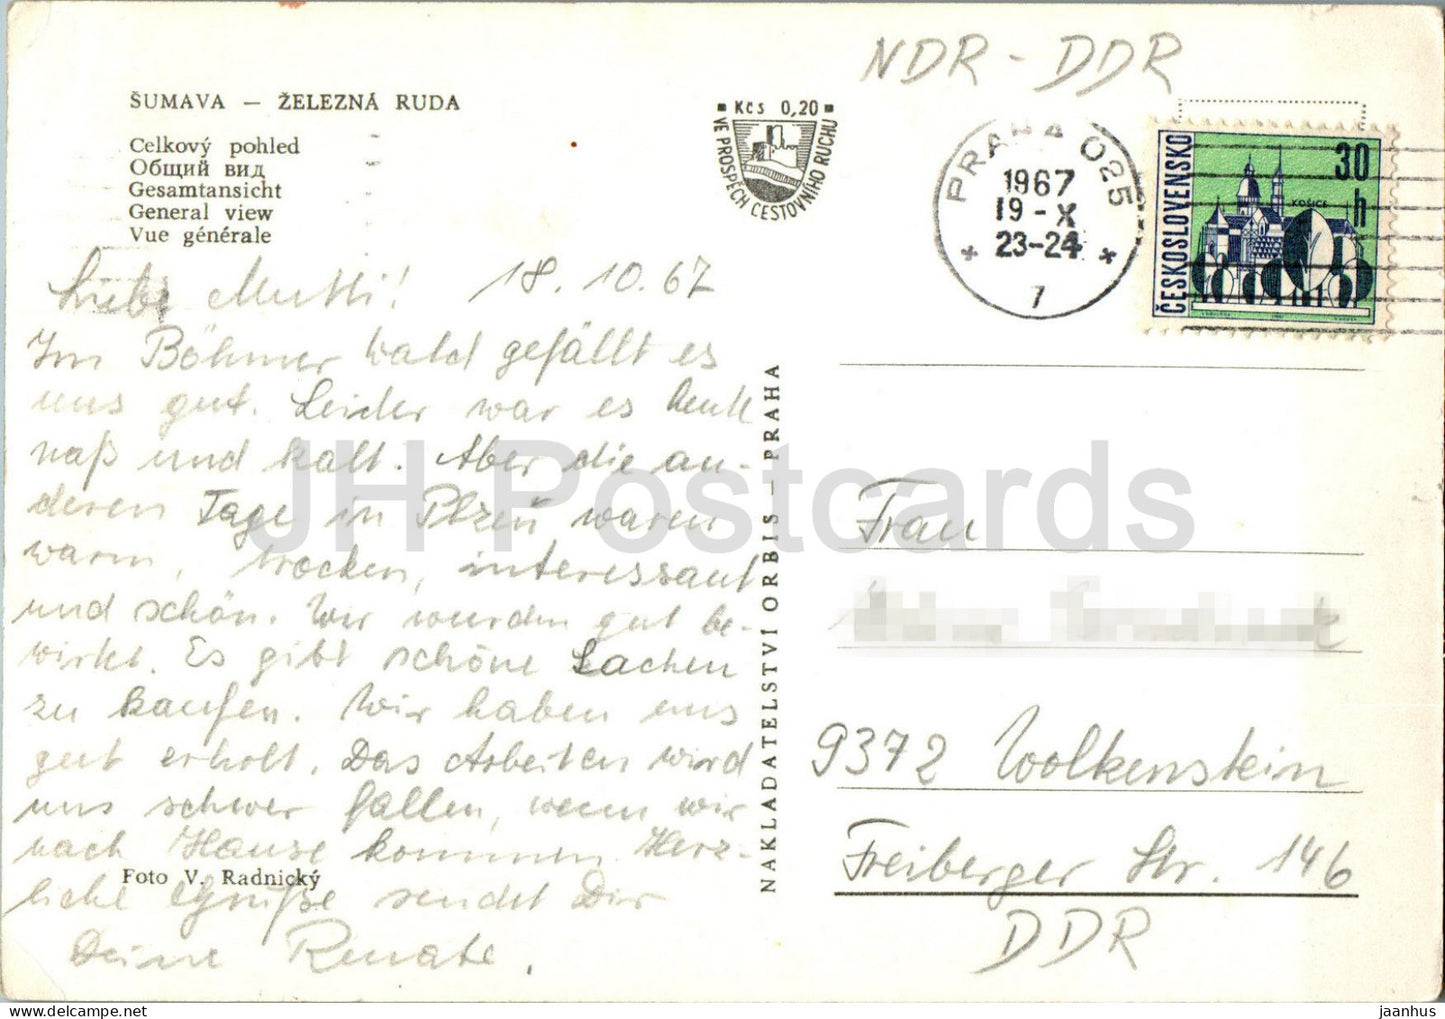 ŠUMAVA — ŽELEZNÁ RUDA
Celkový pohled
Общий вид
Gesamtansicht
General view
Vue générale
Liebe Mutti! 18.10.67
Im Böhmer Wald gefällt es
uns gut. Leider war es heute
naß und kalt. Aber die an-
deren Tage in Plzeň waren
warm, trocken, interessant
und schön. Wir wurden gut be-
wirtet. Es gibt schöne Sachen
zu kaufen. Wir haben uns
gut erholt. Das Arbeiten wird
uns schwer fallen, wenn wir
nach Hause kommen. Herz-
liche Grüße sendet Dir
Deine Renate.
Foto V. Radnický
NAKLADATELSTVÍ ORBIS — PRAHA
Kčs 0,20
VE PROSPĚCH CESTOVNÍHO RUCHU
NDR - DDR
PRAHA 025
1967
19-X
23-24
7
ČESKOSLOVENSKO
30
h
KOŠICE
Frau
9372 Wolkenstein
Freiberger Str. 146
DDR
JH Postcards
jaanhus
delcampe.net